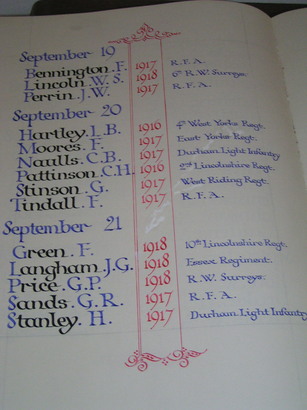 September 19
Bennington. F. 1917 R.F.A.
Lincoln. W.S. 1918 6th R.W. Surreys.
Perrin. J.W. 1917 R.F.A.
September 20
Hartley. L.B. 1916 4th West Yorks Regt.
Moores. F. 1917 East Yorks Regt.
Naulls. C.B. 1917 Durham Light Infantry
Pattinson. C.H. 1916 2nd Lincolnshire Regt.
Stinson. G. 1917 West Riding Regt.
Tindall. F. 1917 R.F.A.
September 21
Green. F. 1918 10th Lincolnshire Regt.
Langham. J.G. 1918 Essex Regiment.
Price. G.P. 1918 R.W. Surreys.
Sands. G.R. 1917 R.F.A.
Stanley. H. 1917 Durham Light Infantry